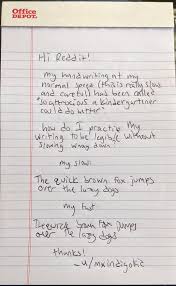 Office
DEPOT.
Hi Reddit!
my handwriting at my
normal speed (this is really slow
and careful) had been called
"so atrocious a kindergartener
could do better"
how do I practice my
writing to be legible without
slowing down
my slow:
The quick brown fox jumps
over the lazy dogs
my fast
The quick brown fox jumps
over the lazy dogs
thanks!
-u/mxindigokid